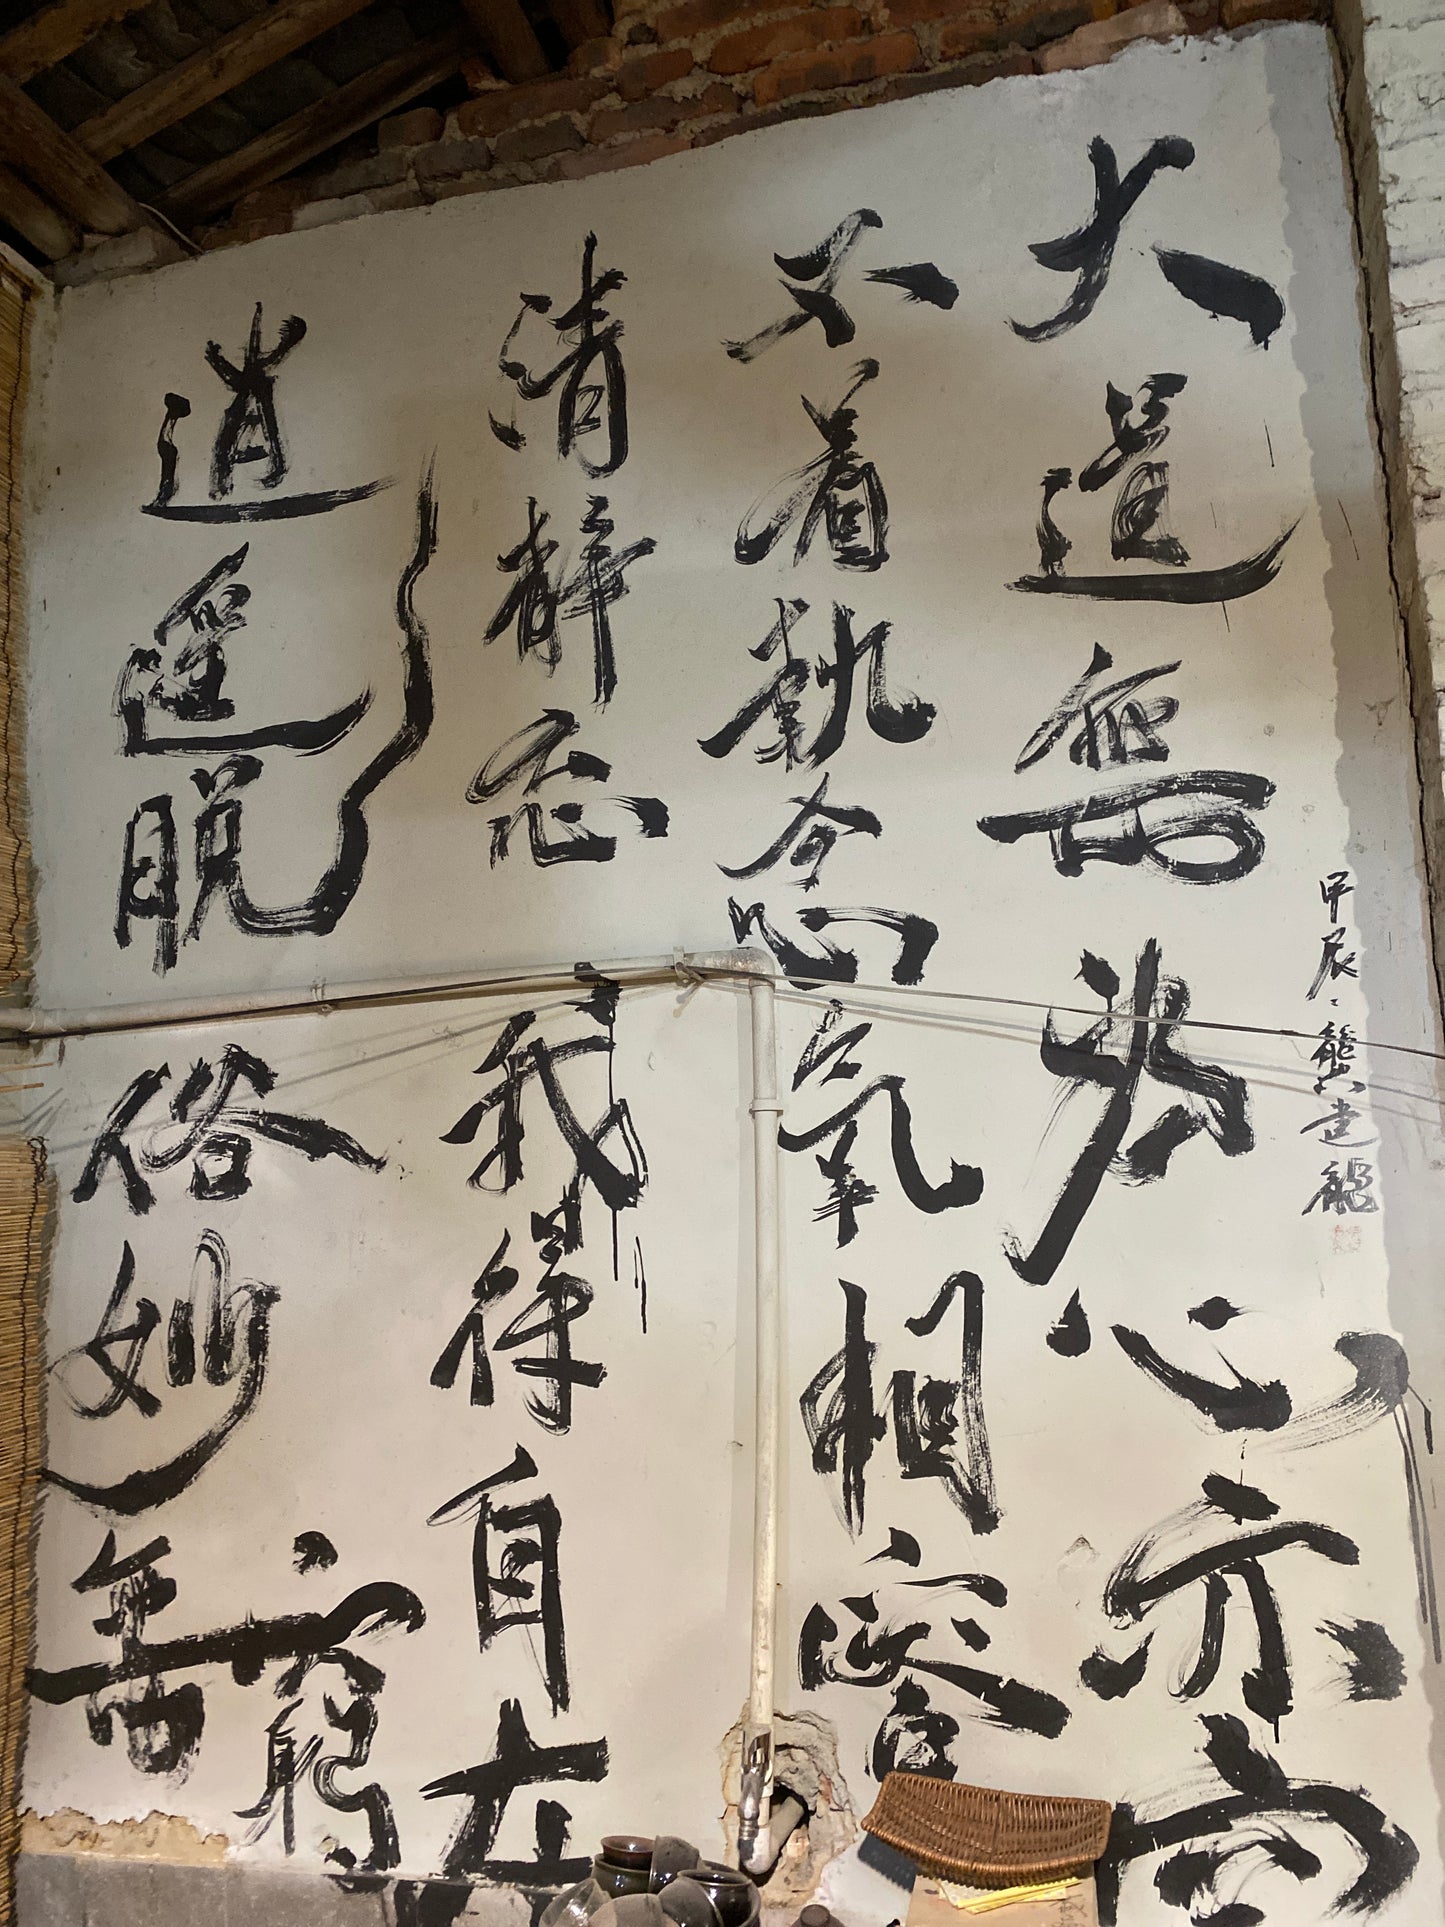 大道無為心亦空
不着執念氣相容
清靜忘我得自在
逍遥脱俗妙無窮
甲辰 龔建龍